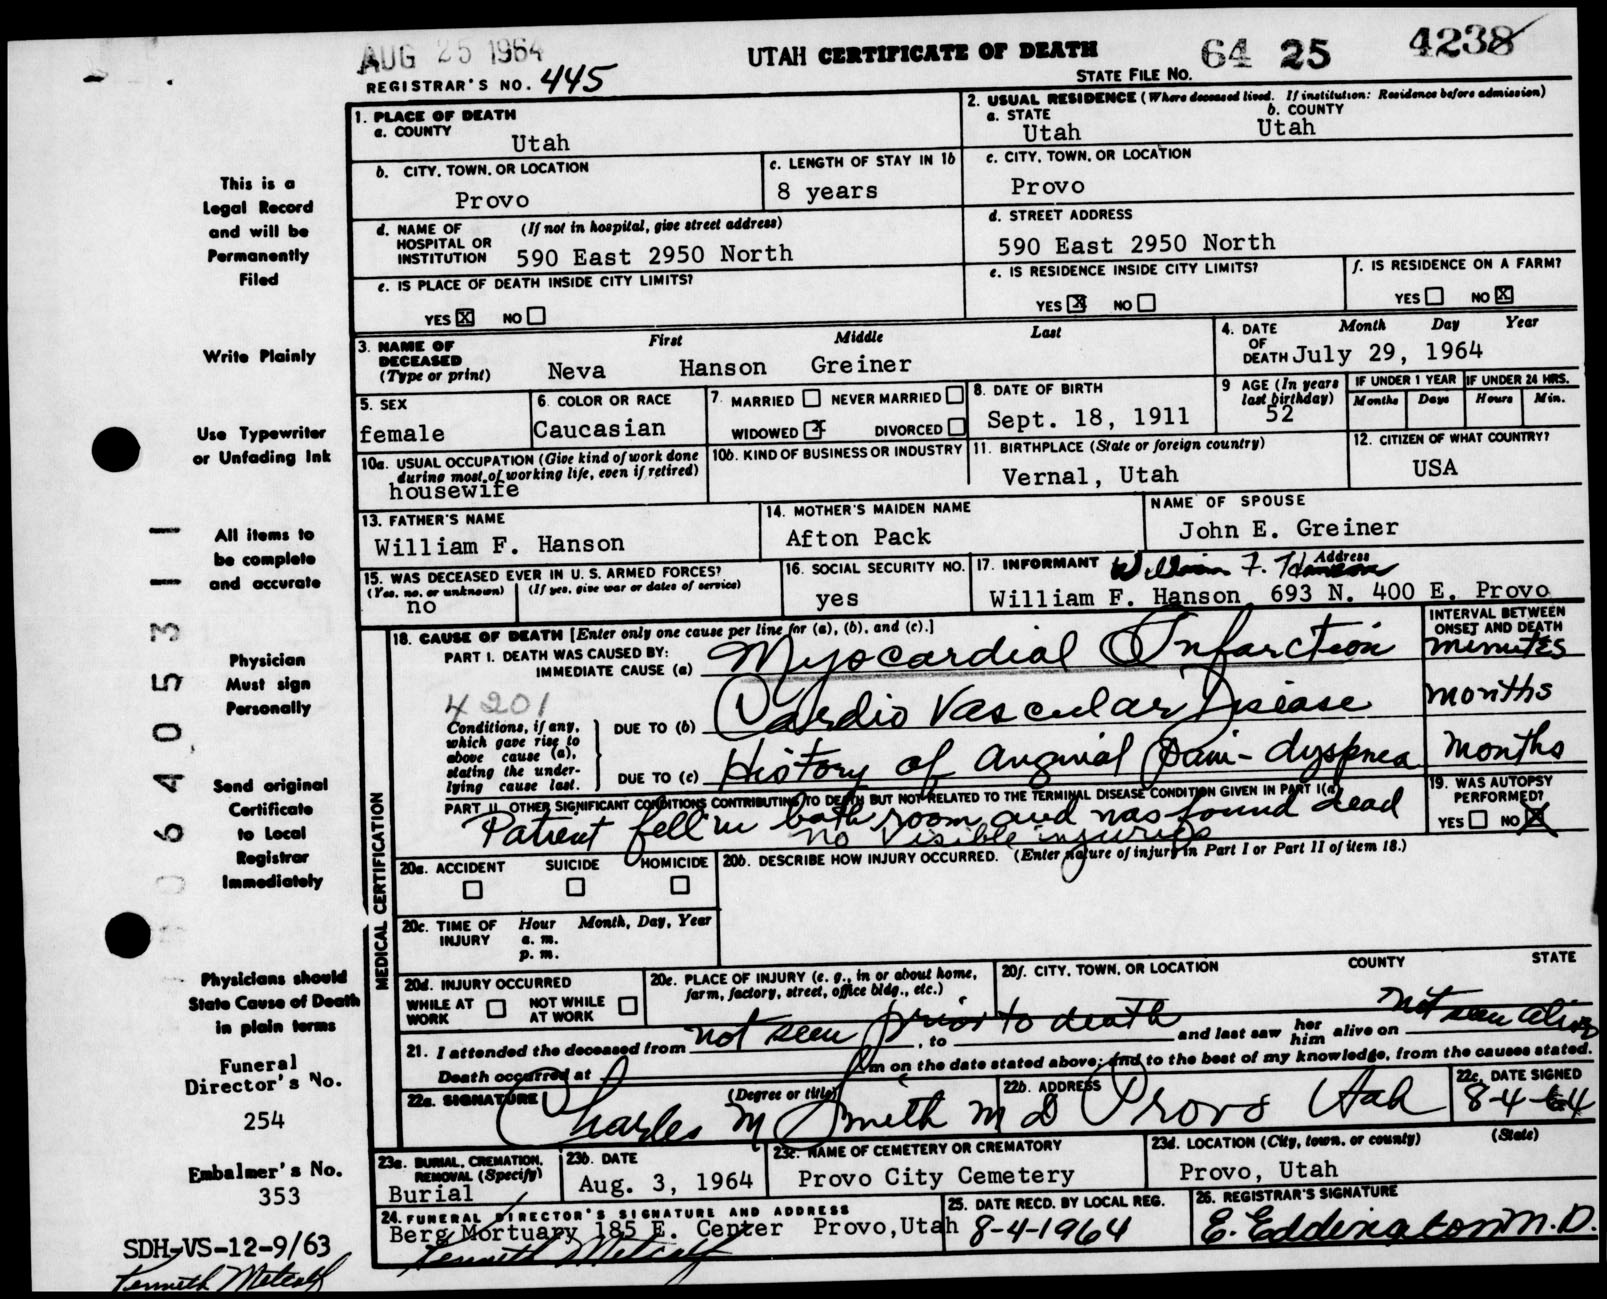 AUG 25 1964
UTAH CERTIFICATE OF DEATH
64 25 4238
REGISTRAR'S NO. 445
STATE FILE NO.
1. PLACE OF DEATH
a. COUNTY
Utah
2. USUAL RESIDENCE (Where deceased lived. If institution: Residence before admission)
a. STATE b. COUNTY
Utah Utah
b. CITY, TOWN, OR LOCATION
Provo
c. LENGTH OF STAY IN 1b
8 years
c. CITY, TOWN, OR LOCATION
Provo
d. NAME OF HOSPITAL OR INSTITUTION (If not in hospital, give street address)
590 East 2950 North
d. STREET ADDRESS
590 East 2950 North
e. IS PLACE OF DEATH INSIDE CITY LIMITS?
YES X NO
e. IS RESIDENCE INSIDE CITY LIMITS?
YES X NO
f. IS RESIDENCE ON A FARM?
YES NO X
3. NAME OF DECEASED (Type or print)
First Middle Last
Neva Hanson Greiner
4. DATE OF DEATH Month Day Year
July 29, 1964
5. SEX
female
6. COLOR OR RACE
Caucasian
7. MARRIED NEVER MARRIED
WIDOWED X DIVORCED
8. DATE OF BIRTH
Sept. 18, 1911
9 AGE (In years last birthday)
52
IF UNDER 1 YEAR IF UNDER 24 HRS.
Months Days Hours Min.
10a. USUAL OCCUPATION (Give kind of work done during most of working life, even if retired)
housewife
10b. KIND OF BUSINESS OR INDUSTRY
11. BIRTHPLACE (State or foreign country)
Vernal, Utah
12. CITIZEN OF WHAT COUNTRY?
USA
13. FATHER'S NAME
William F. Hanson
14. MOTHER'S MAIDEN NAME
Afton Pack
NAME OF SPOUSE
John E. Greiner
15. WAS DECEASED EVER IN U. S. ARMED FORCES?
(Yes, no, or unknown) (If yes, give war or dates of service)
no
16. SOCIAL SECURITY NO.
yes
17. INFORMANT William F. Hanson Address
William F. Hanson 693 N. 400 E. Provo
MEDICAL CERTIFICATION
18. CAUSE OF DEATH [Enter only one cause per line for (a), (b), and (c).]
INTERVAL BETWEEN ONSET AND DEATH
PART I. DEATH WAS CAUSED BY:
IMMEDIATE CAUSE (a) Myocardial Infarction minutes
4201
Conditions, if any, which gave rise to above cause (a), stating the underlying cause last.
DUE TO (b) Cardio Vascular Disease months
DUE TO (c) History of anginal pain-dyspnea months
PART II OTHER SIGNIFICANT CONDITIONS CONTRIBUTING TO DEATH BUT NOT RELATED TO THE TERMINAL DISEASE CONDITION GIVEN IN PART I(a)
Patient fell in bath room and was found dead
no visible injuries
19. WAS AUTOPSY PERFORMED?
YES NO X
20a. ACCIDENT SUICIDE HOMICIDE
20b. DESCRIBE HOW INJURY OCCURRED. (Enter nature of injury in Part I or Part II of item 18.)
20c. TIME OF INJURY Hour Month, Day, Year
a. m.
p. m.
20d. INJURY OCCURRED
WHILE AT WORK NOT WHILE AT WORK
20e. PLACE OF INJURY (e. g., in or about home, farm, factory, street, office bldg., etc.)
20f. CITY, TOWN, OR LOCATION COUNTY STATE
21. I attended the deceased from not seen prior to death , to and last saw her him alive on not seen alive
Death occurred at m on the date stated above; and to the best of my knowledge, from the causes stated.
22a. SIGNATURE (Degree or title)
Charles M Smith M D
22b. ADDRESS
Provo Utah
22c. DATE SIGNED
8-4-64
23a. BURIAL, CREMATION, REMOVAL (Specify)
Burial
23b. DATE
Aug. 3, 1964
23c. NAME OF CEMETERY OR CREMATORY
Provo City Cemetery
23d. LOCATION (City, town, or county) (State)
Provo, Utah
24. FUNERAL DIRECTOR'S SIGNATURE AND ADDRESS
Berg Mortuary 185 E. Center Provo, Utah
Kenneth Metcalf
25. DATE RECD. BY LOCAL REG.
8-4-1964
26. REGISTRAR'S SIGNATURE
E. Eddington M.D.
This is a
Legal Record
and will be
Permanently
Filed
Write Plainly
Use Typewriter
or Unfading Ink
All items to
be complete
and accurate
Physician
Must sign
Personally
Send original
Certificate
to Local
Registrar
Immediately
Physicians should
State Cause of Death
in plain terms
Funeral
Director's No.
254
Embalmer's No.
353
SDH-VS-12-9/63
Kenneth Metcalf